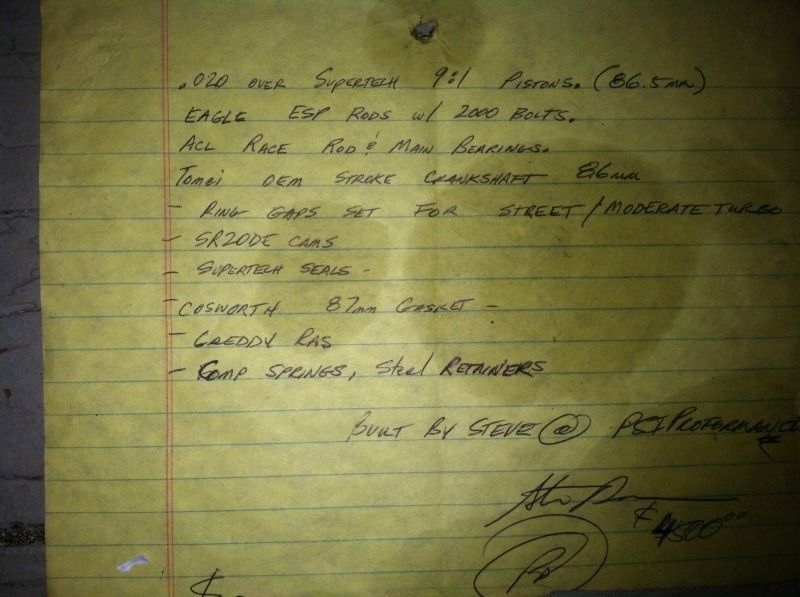 .020 OVER SUPERTECH 9:1 PISTONS. (86.5mm)
EAGLE ESP RODS w/ 2000 BOLTS.
ACL RACE ROD & MAIN BEARINGS.
TOMEI OEM STROKE CRANKSHAFT 86mm
- RING GAPS SET FOR STREET/MODERATE TURBO
- SR20DE CAMS
- SUPERTECH SEALS -
- COSWORTH 87mm GASKET -
- GREDDY RAS
- COMP SPRINGS, Steel RETAINERS
BUILT BY STEVE @ PSI PROFORMANCE
$4500.00